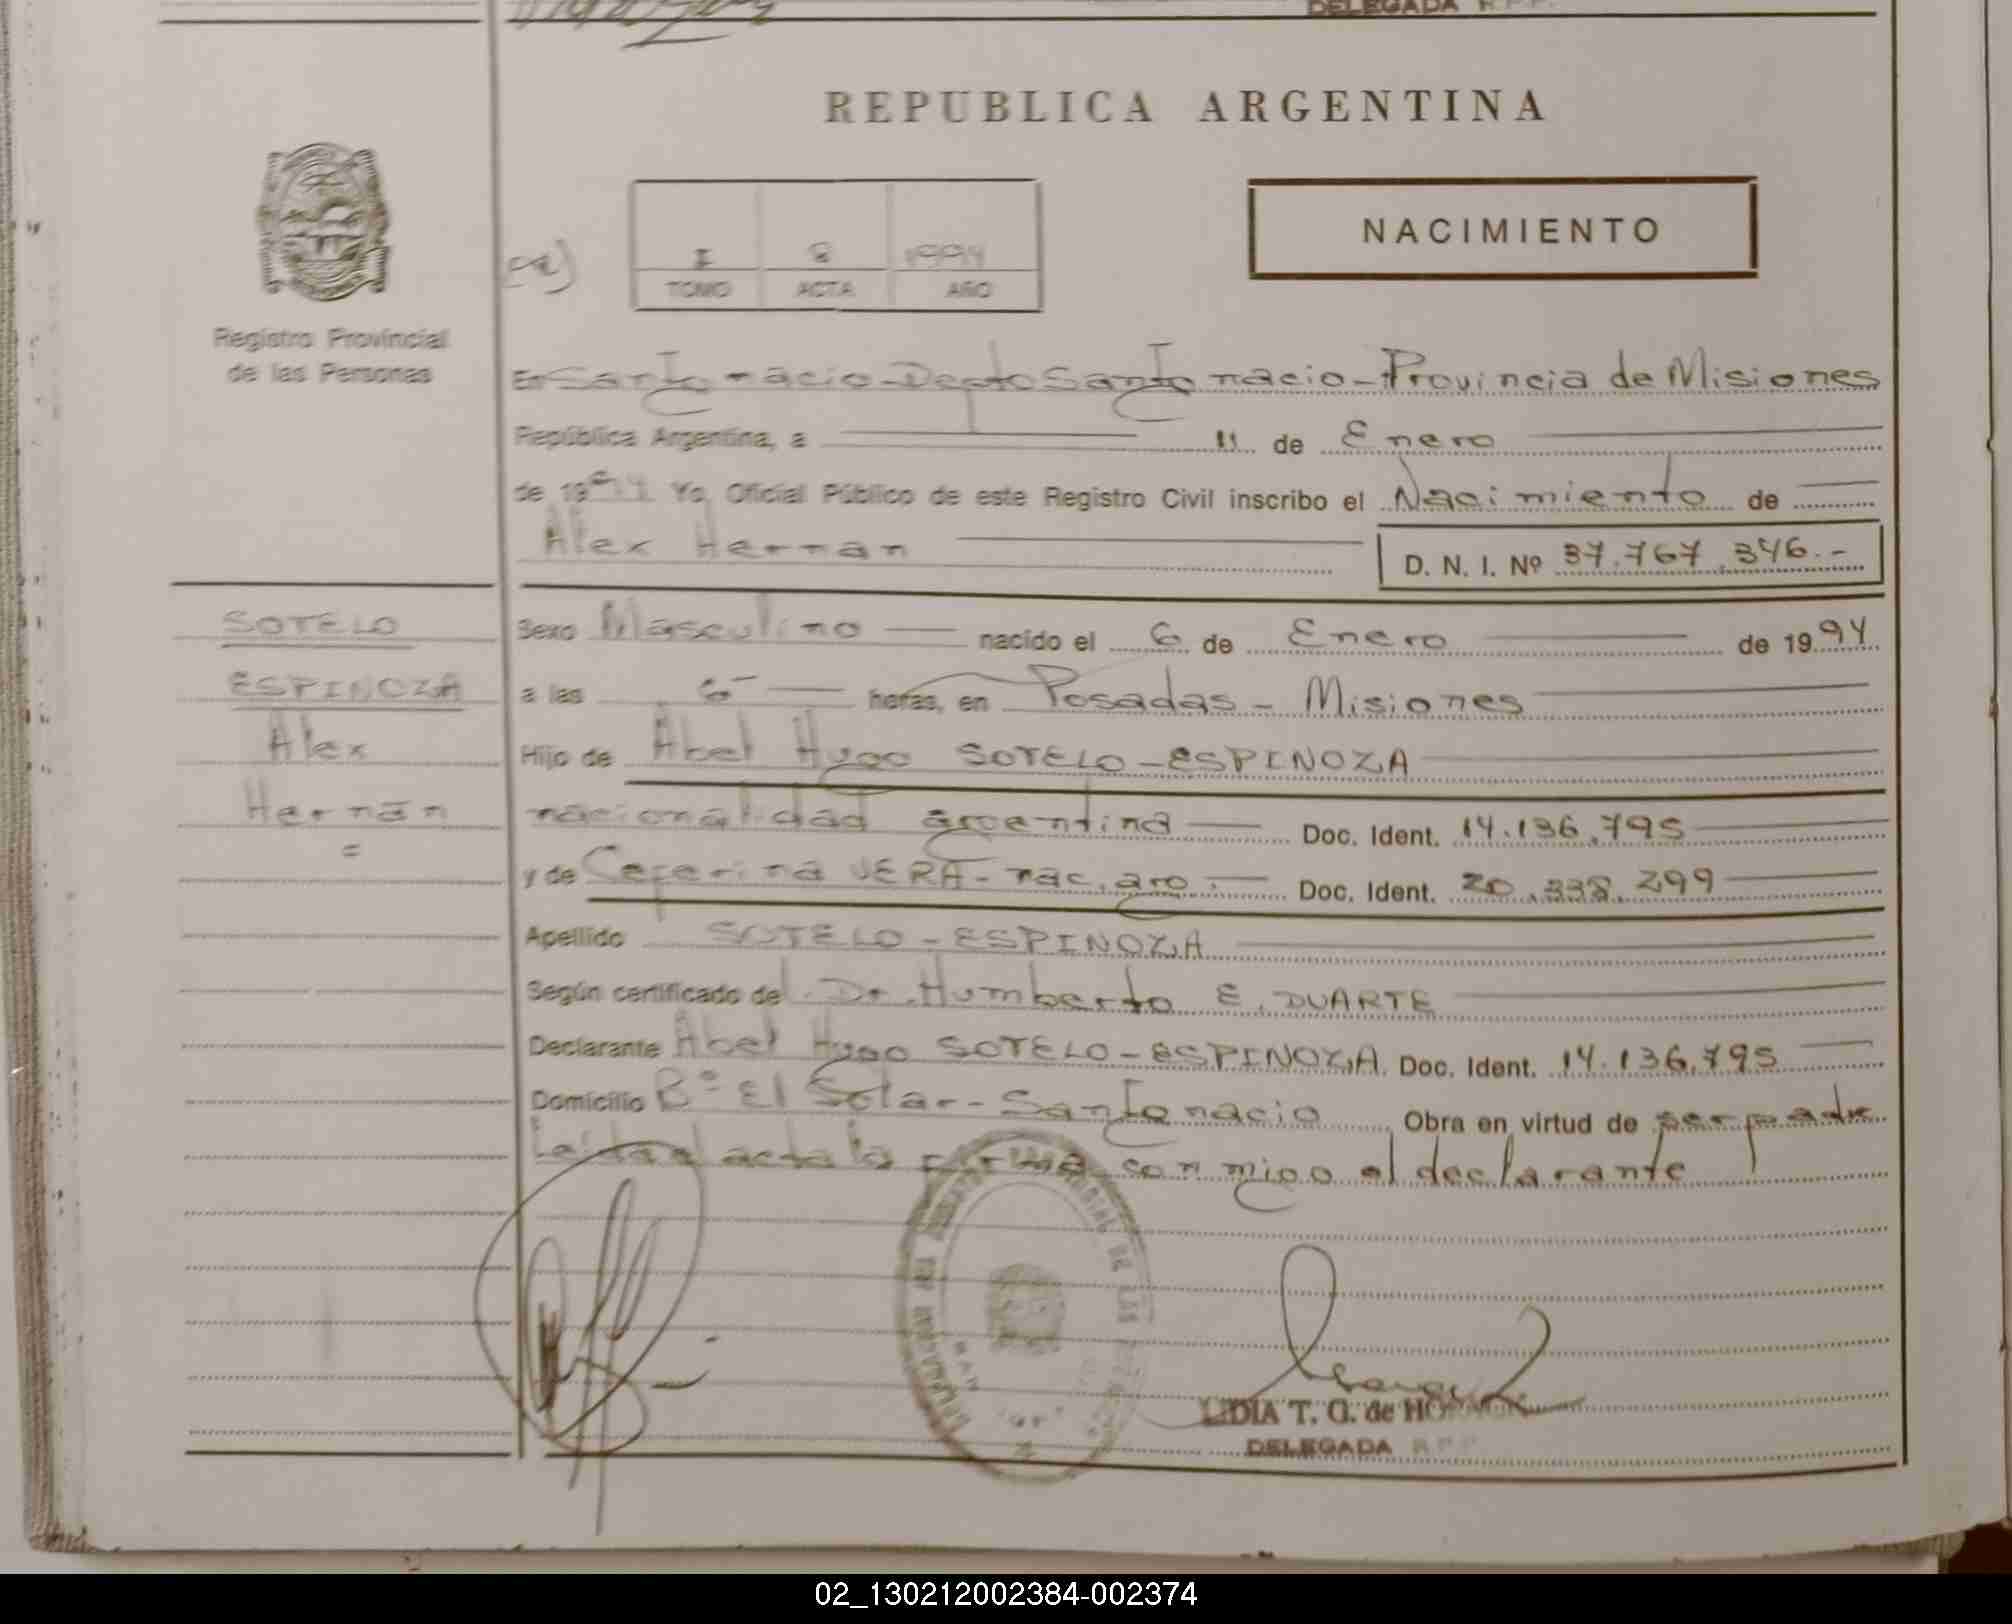 DELEGADA R.P.P.
REPUBLICA ARGENTINA
NACIMIENTO
I 8 1994
TOMO ACTA AÑO
Registro Provincial
de las Personas
En San Ignacio - Depto San Ignacio - Provincia de Misiones
República Argentina, a 11 de Enero
de 1994 Yo, Oficial Público de este Registro Civil inscribo el Nacimiento de
Alex Hernan
D. N. I. Nº 37.767.346.-
SOTELO
ESPINOZA
Alex
Hernán
=
Sexo Masculino nacido el 6 de Enero de 1994
a las 6- horas, en Posadas - Misiones
Hijo de Abel Hugo SOTELO-ESPINOZA
nacionalidad argentina Doc. Ident. 14.136.795
y de Ceferina VERA - nac. arg. Doc. Ident. 20.338.299
Apellido SOTELO-ESPINOZA
Según certificado del Dr. Humberto E. DUARTE
Declarante Abel Hugo SOTELO-ESPINOZA Doc. Ident. 14.136.795
Domicilio Bº El Solar - San Ignacio Obra en virtud de ser padre
Leída el acta la firma conmigo el declarante
LIDIA T. G. de
DELEGADA R.P.P.
02_130212002384-002374